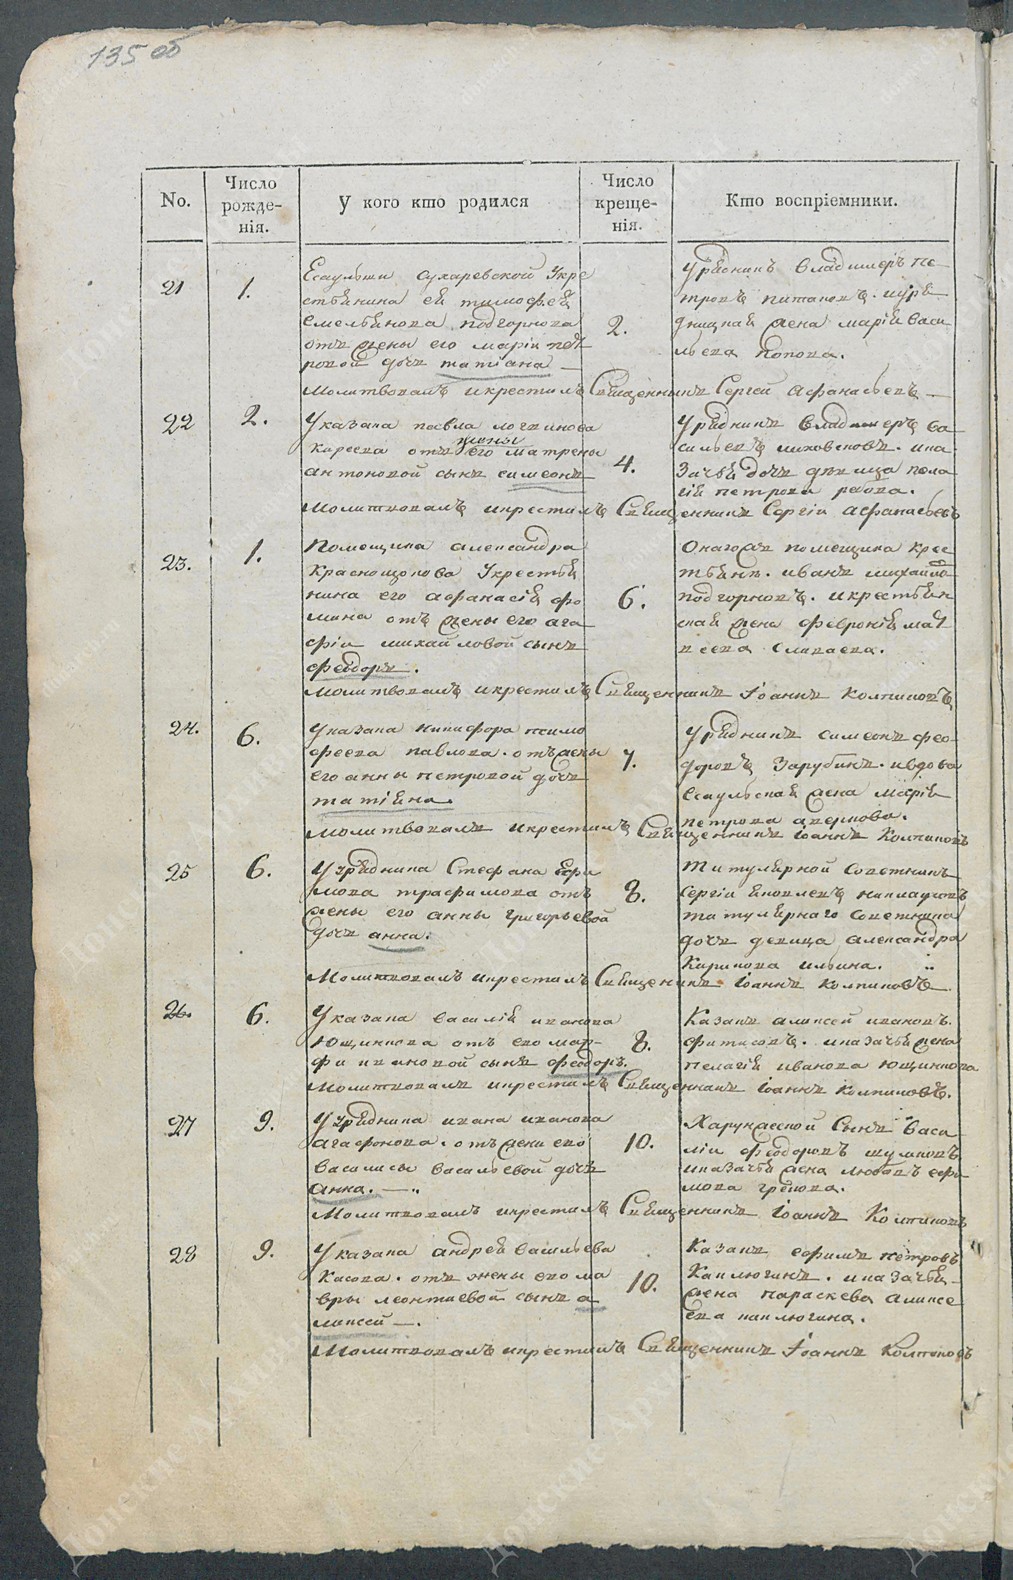 135 об
No. Число рожде- нія. У кого кто родился Число креще- нія. Кто воспріемники.
21 1. 2.
Есаульши Сухаревской Укре
стьянина ея тимофея
емельянова подгорнова
отъ жены его маріи пет
ровой дочь татіана
Урядникъ владимеръ пе
тровъ питановъ. иуря
дницкая жена марія васи
льева попова.
Молитвовалъ икрестилъ Священникъ Сергей Афанасьевъ
22 2. 4.
Указака павла логвинова
карсева отъ жены его матрены
антоновой сынъ симеонъ
Урядникъ владимеръ ва
сильевъ миховсковъ. ика
зачья дочь девица пела
гія петрова
Молитвовалъ икрестилъ Священникъ Сергіи Афанасьевъ
23. 1. 6.
Помещика александра
краснощокова Укрестья
нина его афанасія фо
мина отъ жены его ага
фіи михайловой сынъ
феодоръ.
Онагожъ помещика крес
тьянъ. иванъ михайло
подгорновъ. икрестьян
ская жена февронія мат
веева сливаева.
молитвовалъ икрестилъ Священникъ Іоаннъ колпиковъ
24. 6. 7.
Указака никифора тимо
феева павлова. отъ жены
его анны петровой дочь
татіяна.
Урядникъ симеонъ фео
доровъ Зарубинъ. ивдова
есаульская жена марія
петрова аверкова.
молитвовалъ икрестилъ Священникъ іоаннъ Колпиковъ
25 6. 8.
Уурядника Стефана ефи
мова трафимова отъ
жены его анны григорьевой
дочь анна.
Титулярной Советникъ
сергіи яковлевъ
титулярнаго советника
дочь девица александра
Карпова ильина.
Молитвовалъ икрестилъ Священникъ Іоаннъ колпиковъ
26. 6. 8.
Указака василія иванова
Ющинкова отъ его мар-
фи ивановой сынъ феодоръ.
Казакъ алексей ивановъ.
фитисовъ. иказачья жена
пелагія иванова ющинкова
Молитвовалъ икрестилъ Священникъ іоаннъ колпиковъ.
27 9. 10.
Уурядника ивана иванова
агафонова. отъ жены его
василисы васильевой дочь
анна.
Харунжеской Сынъ васи
ліи феодоровъ шумковъ
иказачья жена любовъ ефи
мова грекова.
Молитвовалъ икрестилъ Священникъ Іоаннъ Колпиковъ
28 9. 10.
Указака андрея васильева
касова. отъ жены его ма
вры леонтиевой сынъ а
лексей.
Казакъ ефимъ петровъ
Каплюгинъ. иказачья
жена параскева алексе
ева каплюгина.
Молитвовалъ икрестилъ Священникъ Іоаннъ Колпиковъ